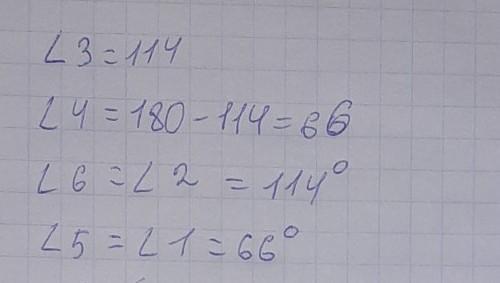 ∠3=114
∠4=180-114=66
∠6=∠2=114°
∠5=∠1=66°